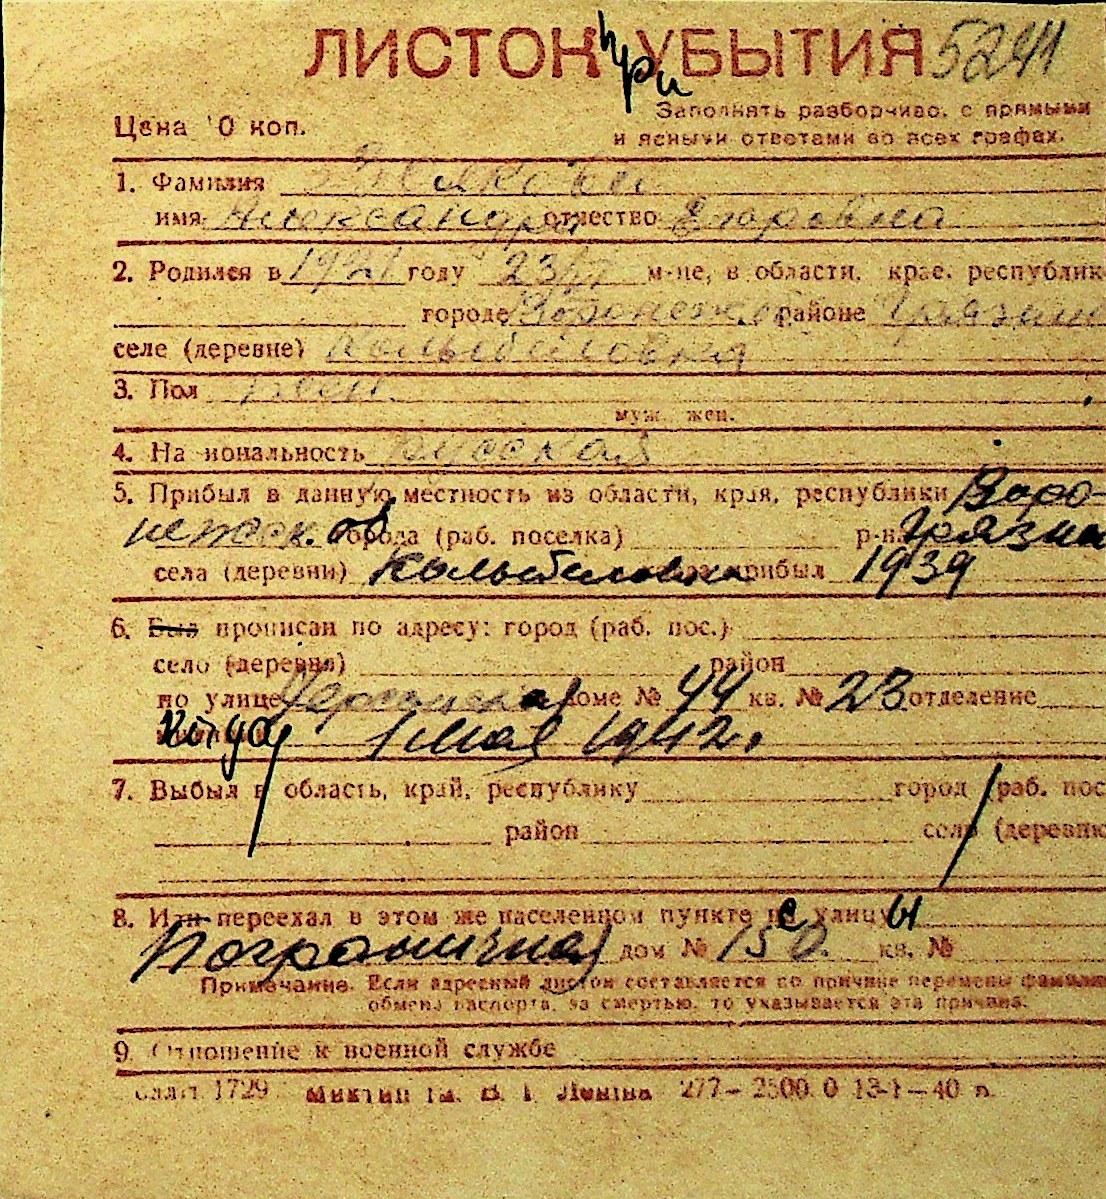 ЛИСТОК при УБЫТИЯ 5241
Цена 10 коп.
Заполнять разборчиво, с прямыми
и ясными ответами во всех графах.
1. Фамилия
имя Александра отчество Егоровна
2. Родился в 1921 году 23/VI м-це, в области, крае, республик
городе Воронежск. обл районе Грязин
селе (деревне) Колыбеловка
3. Пол жен.
муж. жен.
4. Национальность русская
5. Прибыл в данную местность из области, края, республики Воро-
нежск. об города (раб. поселка) р-на Грязин
села (деревни) Колыбеловка прибыл 1939
6. Был прописан по адресу: город (раб. пос.)
село (деревня) район
по улице доме № 44 кв. № 23 отделение
милиции Когда 1 мая 1942.
7. Выбыл в область, край, республику город (раб. пос
район село (деревню
8. Или переехал в этом же населенном пункте с улицы
Пограничная дом № 15а. кв. №
Примечание. Если адресный листок составляется по причине перемены фамилии
обмена паспорта, за смертью, то указывается эта причина.
9. Отношение к военной службе
1729 277—2500.0 13-1—40 г.